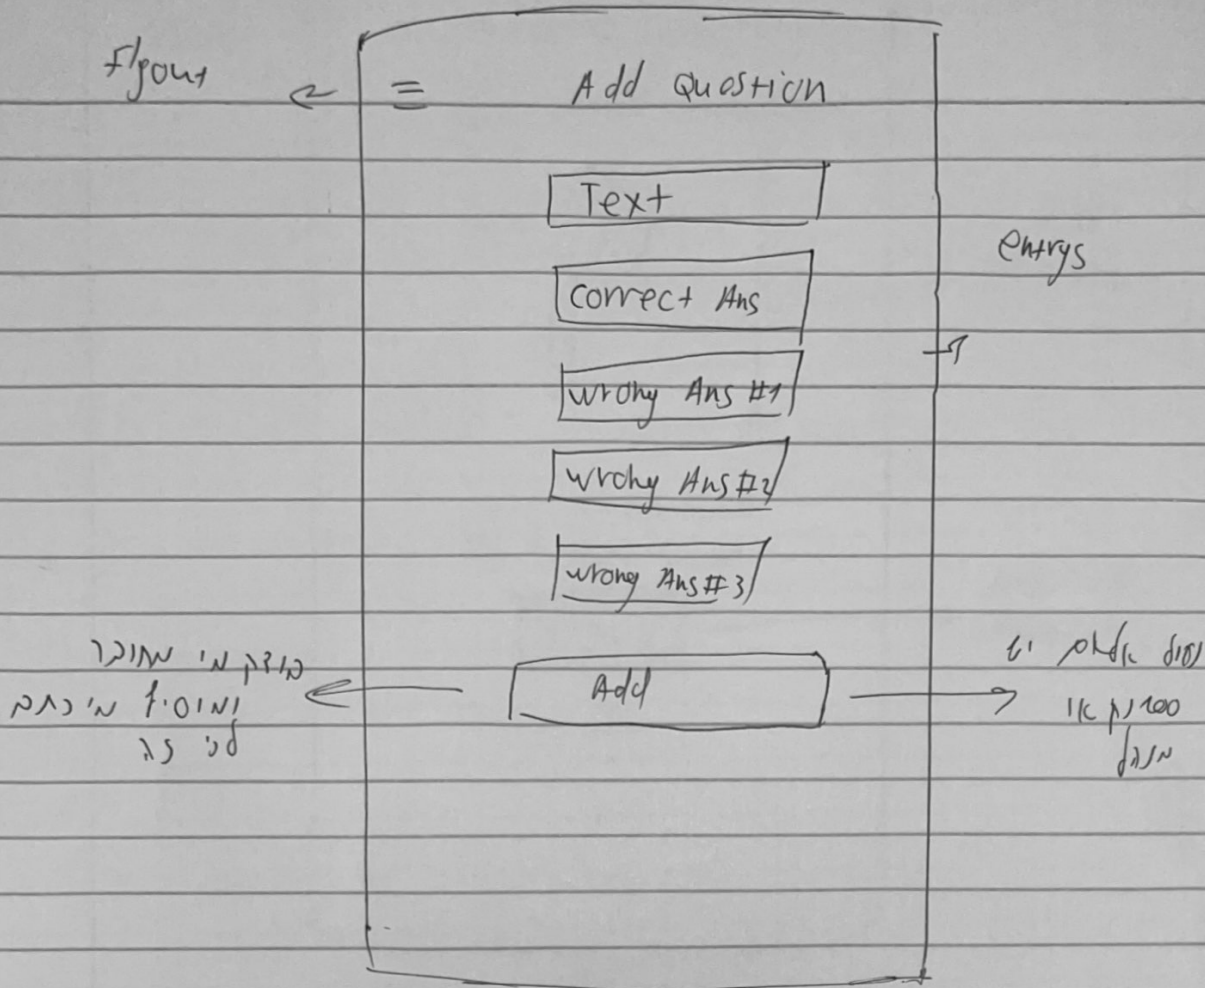 flyout
≡ Add Question
Text
entrys
correct Ans
wrong Ans #1
wrong Ans #2
wrong Ans #3
Add
בודק מי מחובר
ומוסיף מי כתב
לפי זה
יש
או
מנהל